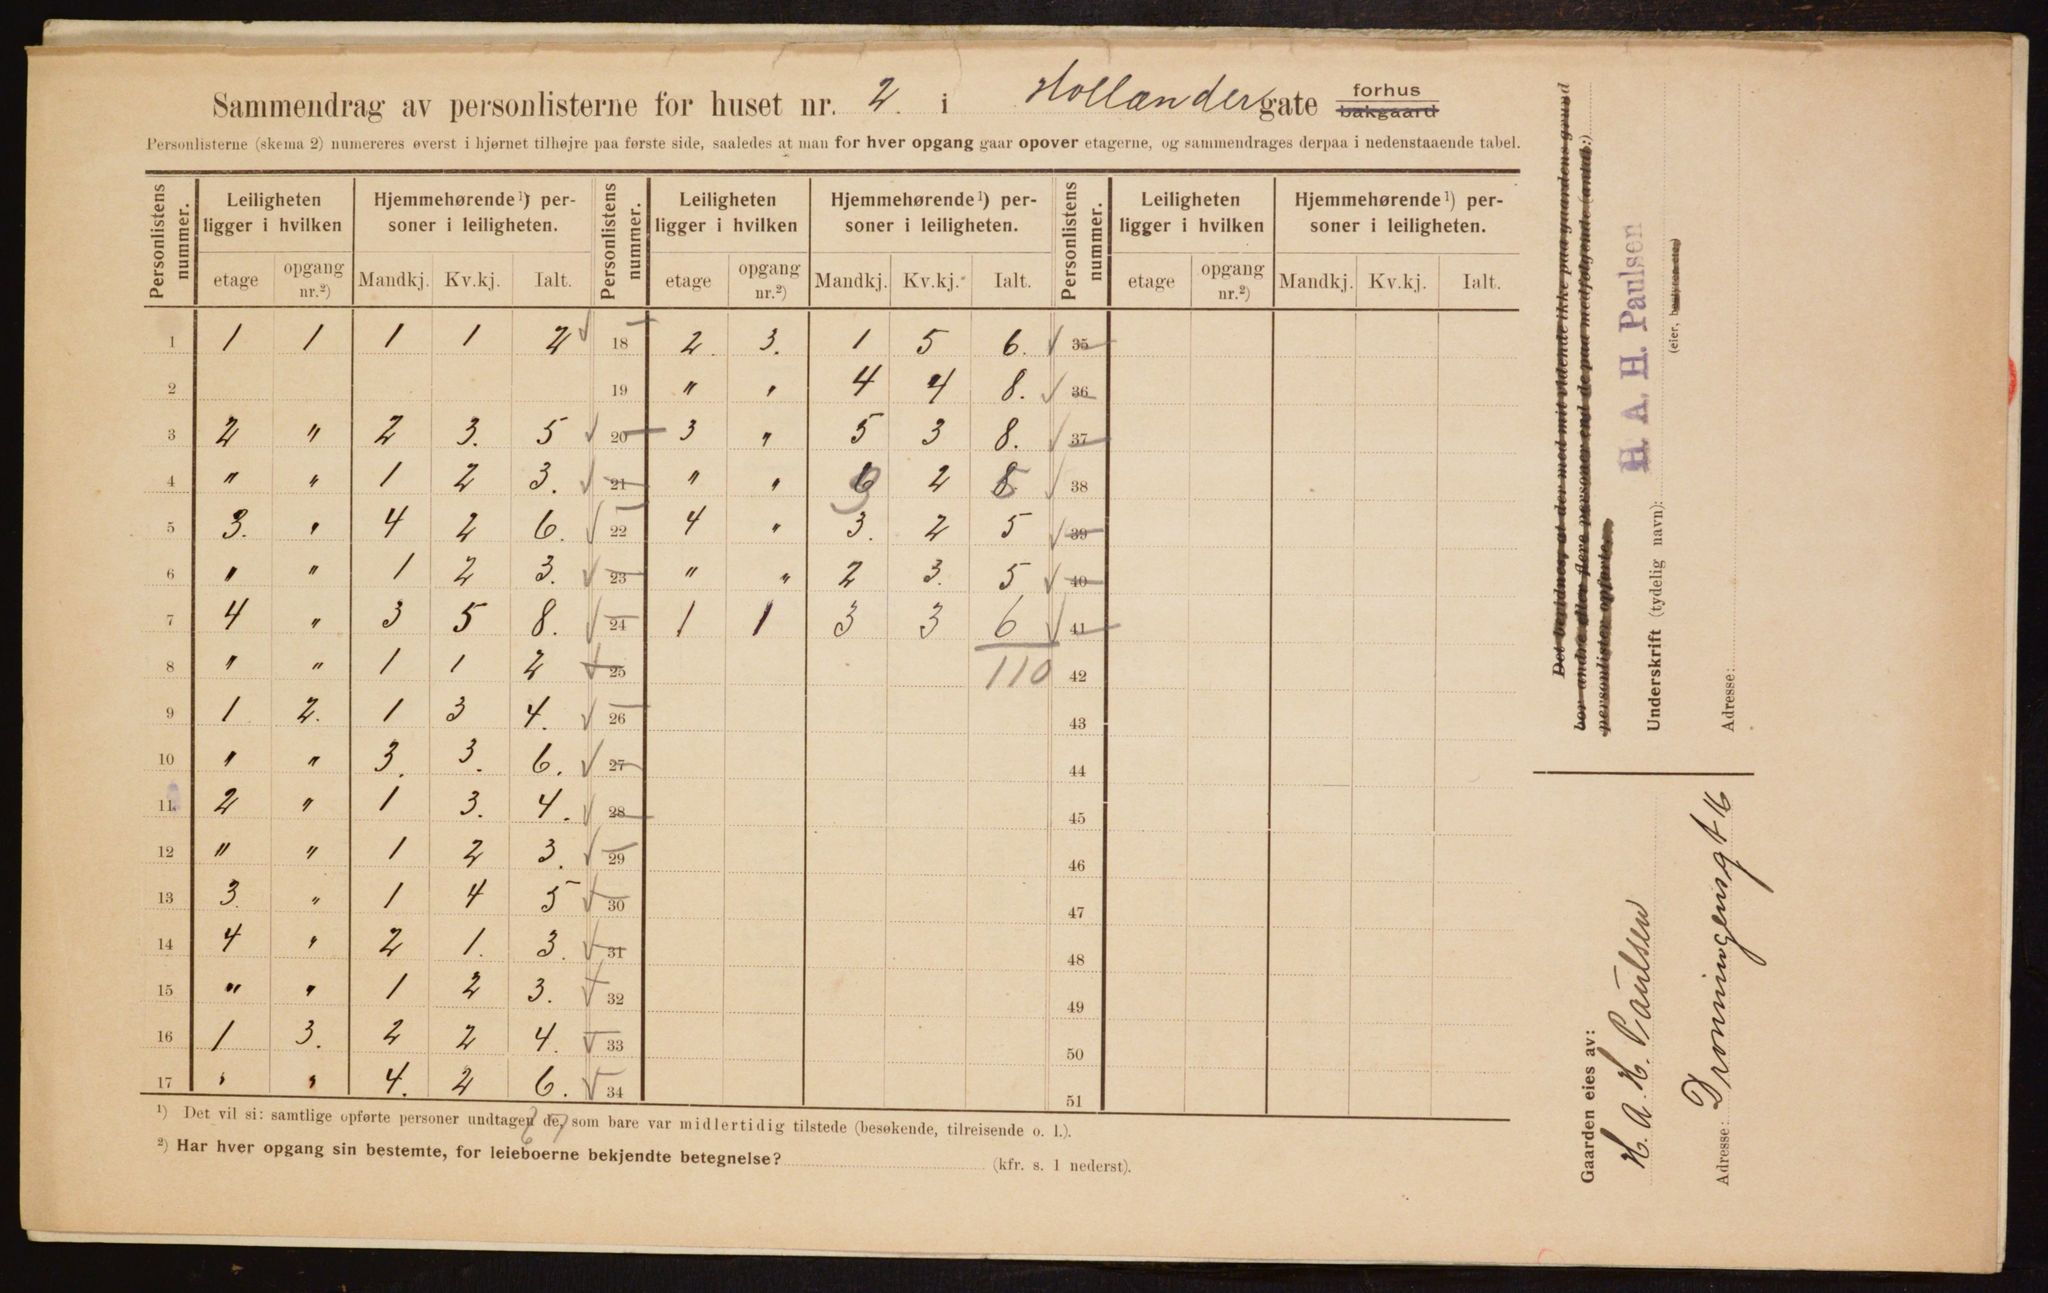 Sammendrag av personlisterne for huset nr. 2. i Hollændergate forhus bakgaard
Personlisterne (skema 2) numereres øverst i hjørnet tilhøjre paa første side, saaledes at man for hver opgang gaar opover etagerne, og sammendrages derpaa i nedenstaaende tabel.
Personlistens nummer. Leiligheten ligger i hvilken Hjemmehørende 1) personer i leiligheten. Personlistens nummer. Leiligheten ligger i hvilken Hjemmehørende 1) personer i leiligheten. Personlistens nummer. Leiligheten ligger i hvilken Hjemmehørende 1) personer i leiligheten.
etage opgang nr.2) Mandkj. Kv.kj. Ialt. etage opgang nr.2) Mandkj. Kv.kj. Ialt. etage opgang nr.2) Mandkj. Kv.kj. Ialt.
1 1 1 1 1 2 18 2. 3. 1 5 6. 35
2 19 " " 4 4 8. 36
3 2 " 2 3. 5 20 3 " 5 3 8. 37
4 " " 1 2 3. 21 " " 2 38
5 3. " 4 2 6. 22 4 " 3. 2 5 39
6 " " 1 2 3. 23 " " 2 3. 5 40
7 4 " 3 5 8. 24 1 1 3 3 6 41
8 " " 1 1 2 25 110 42
9 1 2. 1 3 4. 26 43
10 " " 3. 3. 6. 27 44
11 2 " 1 3. 4. 28 45
12 " " 1 2 3. 29 46
13 3. " 1 4 5 30 47
14 4 " 2 1. 3. 31 48
15 " " 1 2 3. 32 49
16 1 3. 2 2 4. 33 50
17 " " 4. 2 6. 34 51
1) Det vil si: samtlige opførte personer undtagen de, som bare var midlertidig tilstede (besøkende, tilreisende o. l.).
67
2) Har hver opgang sin bestemte, for leieboerne bekjendte betegnelse? (kfr. s. 1 nederst).
Det bevidnes, at der med mit vidende ikke paa gaardens grund
bor andre eller flere personer end de paa medfølgende (antal:)
personlister opførte.
Underskrift (tydelig navn): H. A. H. Paulsen
(eier, bestyrer etc.)
Adresse:
Gaarden eies av:
H. A. H. Paulsen
Adresse: Dronningensgt 16